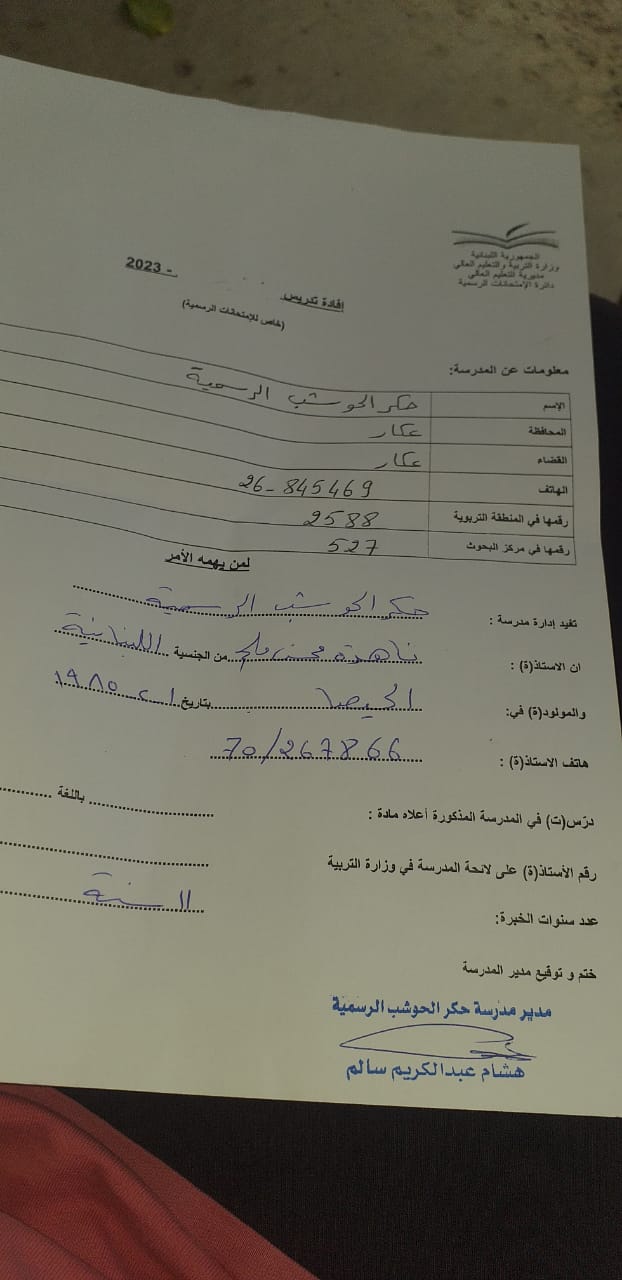 الجمهورية اللبنانية
وزارة التربية والتعليم العالي
مديرية التعليم العالي
دائرة الإمتحانات الرسمية
2023 -
إفادة تدريس
(خاص للإمتحانات الرسمية)
معلومات عن المدرسة:
الإسم حكر الحوشب الرسمية
المحافظة عكار
القضاء عكار
الهاتف 26-845469
رقمها في المنطقة التربوية 2588
رقمها في مركز البحوث 527
لمن يهمه الأمر
تفيد إدارة مدرسة : حكر الحوشب الرسمية
ان الاستاذ(ة) : ناهدة محسن من الجنسية اللبنانية
والمولود(ة) في: الحيصا بتاريخ ١٩٨٥
هاتف الاستاذ(ة) : 70/267866
درّس(ت) في المدرسة المذكورة أعلاه مادة : باللغة
رقم الأستاذ(ة) على لائحة المدرسة في وزارة التربية
عدد سنوات الخبرة: سنة
ختم و توقيع مدير المدرسة
مدير مدرسة حكر الحوشب الرسمية
هشام عبدالكريم سالم